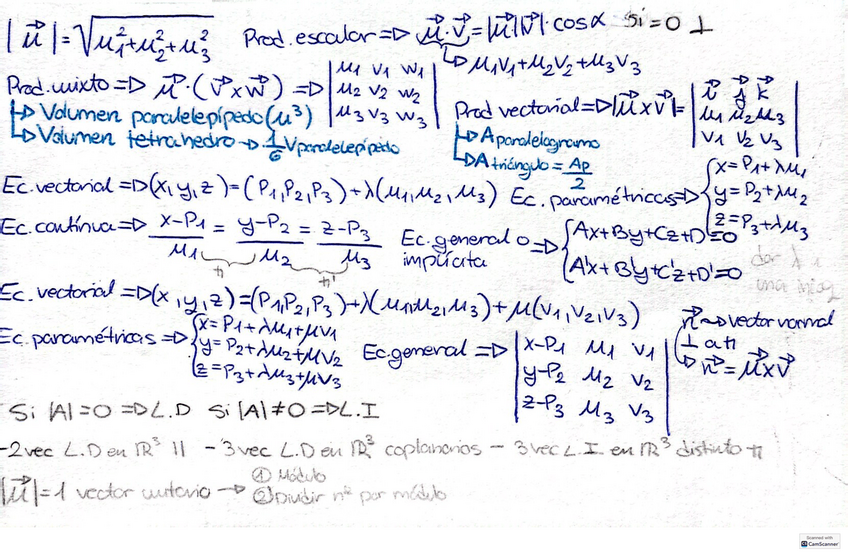 |u⃗|=√u₁²+u₂²+u₃² Prod. escalar => u⃗·v⃗=|u⃗||v⃗|·cosα Si=0 ⊥
↳ u₁v₁+u₂v₂+u₃v₃
Prod. mixto => u⃗·(v⃗×w⃗) => |u₁ v₁ w₁
u₂ v₂ w₂
u₃ v₃ w₃|
↳ Volumen paralelepípedo (u³)
↳ Volumen tetrahedro → 1/6 V paralelepípedo
Prod vectorial => |u⃗×v⃗| = |i⃗ j⃗ k⃗
u₁ u₂ u₃
v₁ v₂ v₃|
↳ A paralelogramo
↳ A triángulo = Ap/2
Ec. vectorial => (x,y,z)=(P₁,P₂,P₃)+λ(u₁,u₂,u₃) Ec. paramétricas => {x=P₁+λu₁
y=P₂+λu₂
z=P₃+λu₃
Ec. contínua => x-P₁/u₁ = y-P₂/u₂ = z-P₃/u₃ Ec. general o implícita => {Ax+By+Cz+D=0
π π'
A'x+B'y+C'z+D'=0
Ec. vectorial => (x,y,z)=(P₁,P₂,P₃)+λ(u₁,u₂,u₃)+μ(v₁,v₂,v₃)
Ec. paramétricas => {x=P₁+λu₁+μv₁
y=P₂+λu₂+μv₂
z=P₃+λu₃+μv₃
Ec. general => |x-P₁ u₁ v₁
y-P₂ u₂ v₂
z-P₃ u₃ v₃|
n⃗ → vector normal
⊥ a π
↳ n⃗=u⃗×v⃗
Si |A|=0 => L.D Si |A|≠0 => L.I
-2 vec L.D en ℝ³ || -3 vec L.D en ℝ³ coplanarios - 3 vec L.I. en ℝ³ distinto π
|u⃗|=1 vector unitario → ① Módulo
② Dividir nº por módulo
Scanned with
CamScanner